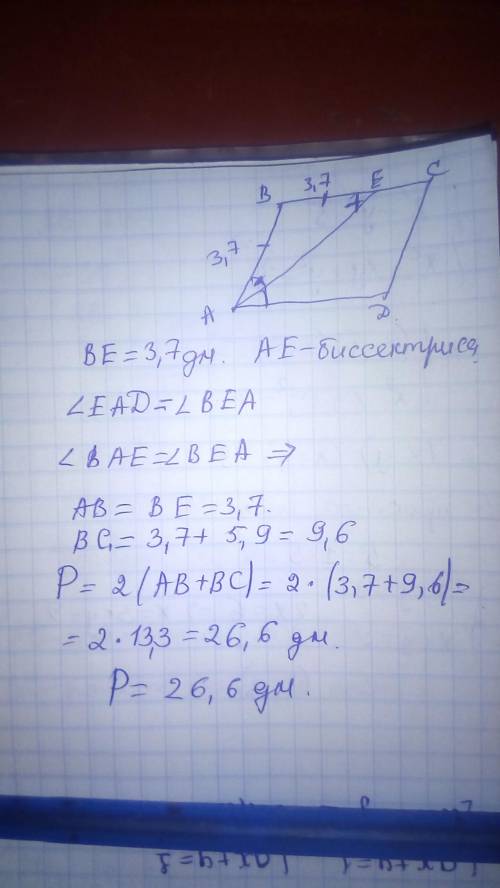 B 3,7 E C
3,7
A D
BE = 3,7 дм. AE - биссектриса
∠EAD = ∠BEA
∠BAE = ∠BEA ⇒
AB = BE = 3,7.
BC = 3,7 + 5,9 = 9,6
P = 2(AB + BC) = 2 · (3,7 + 9,6) =
= 2 · 13,3 = 26,6 дм.
P = 26,6 дм.